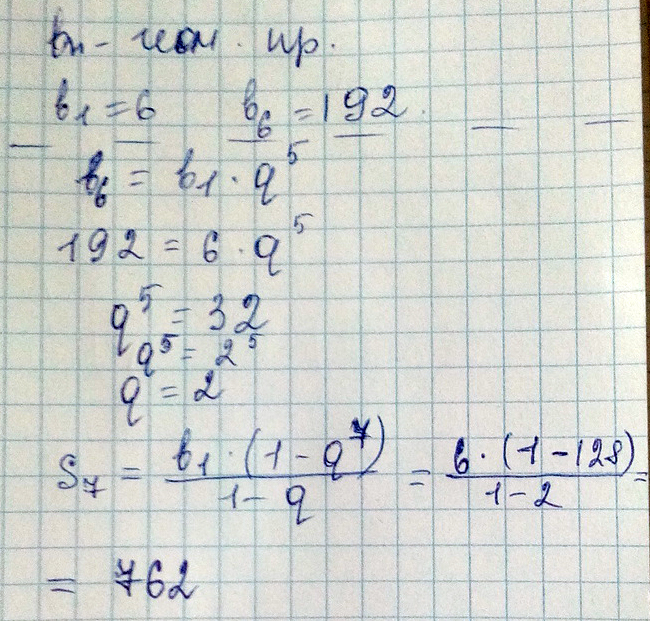 bn - геом. пр.
b₁ = 6 b₆ = 192.
b₆ = b₁ · q⁵
192 = 6 · q⁵
q⁵ = 32
q⁵ = 2⁵
q = 2
S₇ = b₁ · (1 - q⁷) / 1 - q = 6 · (1 - 128) / 1 - 2 =
= 762